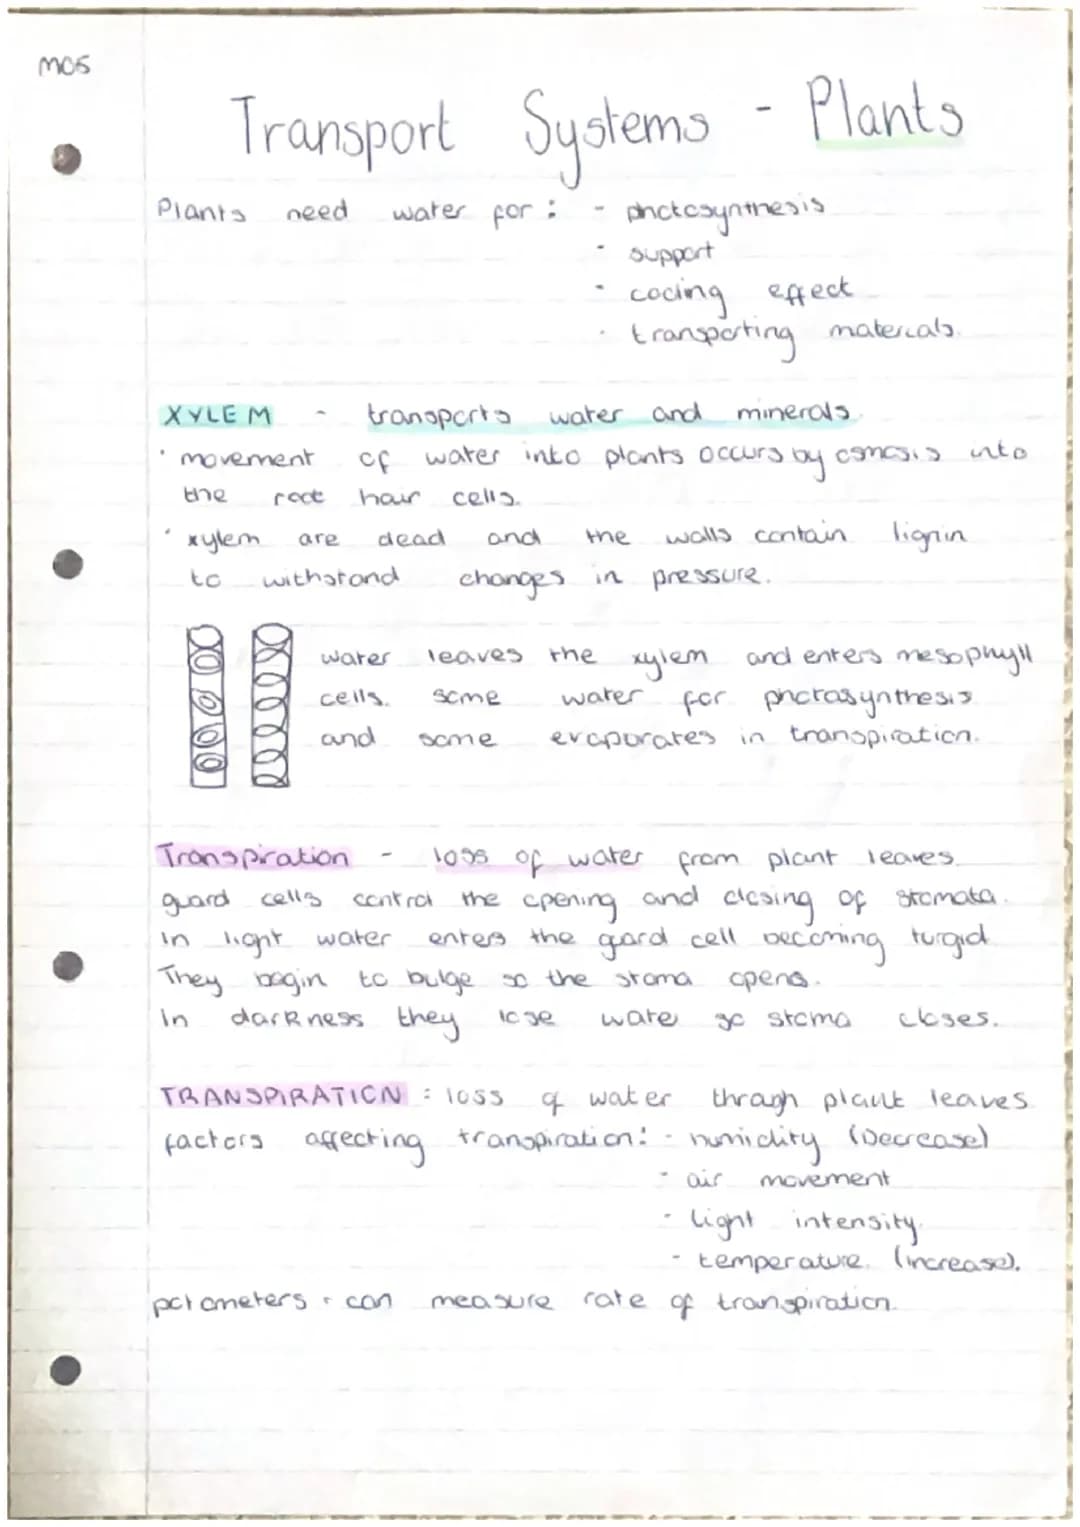 MO5
Transport Systems - Plants
Plants need water for : - photosynthesis
- support
- cooling effect
- transporting materials.
XYLEM - transports water and minerals.
· movement of water into plants occurs by osmosis into
the root hair cells.
· xylem are dead and the walls contain lignin
to withstand changes in pressure.
water leaves the xylem and enters mesophyll
cells. some water for photosynthesis
and some evaporates in transpiration.
Transpiration - loss of water from plant leaves.
guard cells control the opening and closing of stomata.
In light water enters the guard cell becoming turgid.
They begin to bulge so the stoma opens.
In darkness they lose wate so stoma closes.
TRANSPIRATION : loss of water through plant leaves.
factors affecting transpiration: - humidity (Decrease)
- air movement
- light intensity.
- temperature. (increase).
potometers - can measure rate of transpiration.